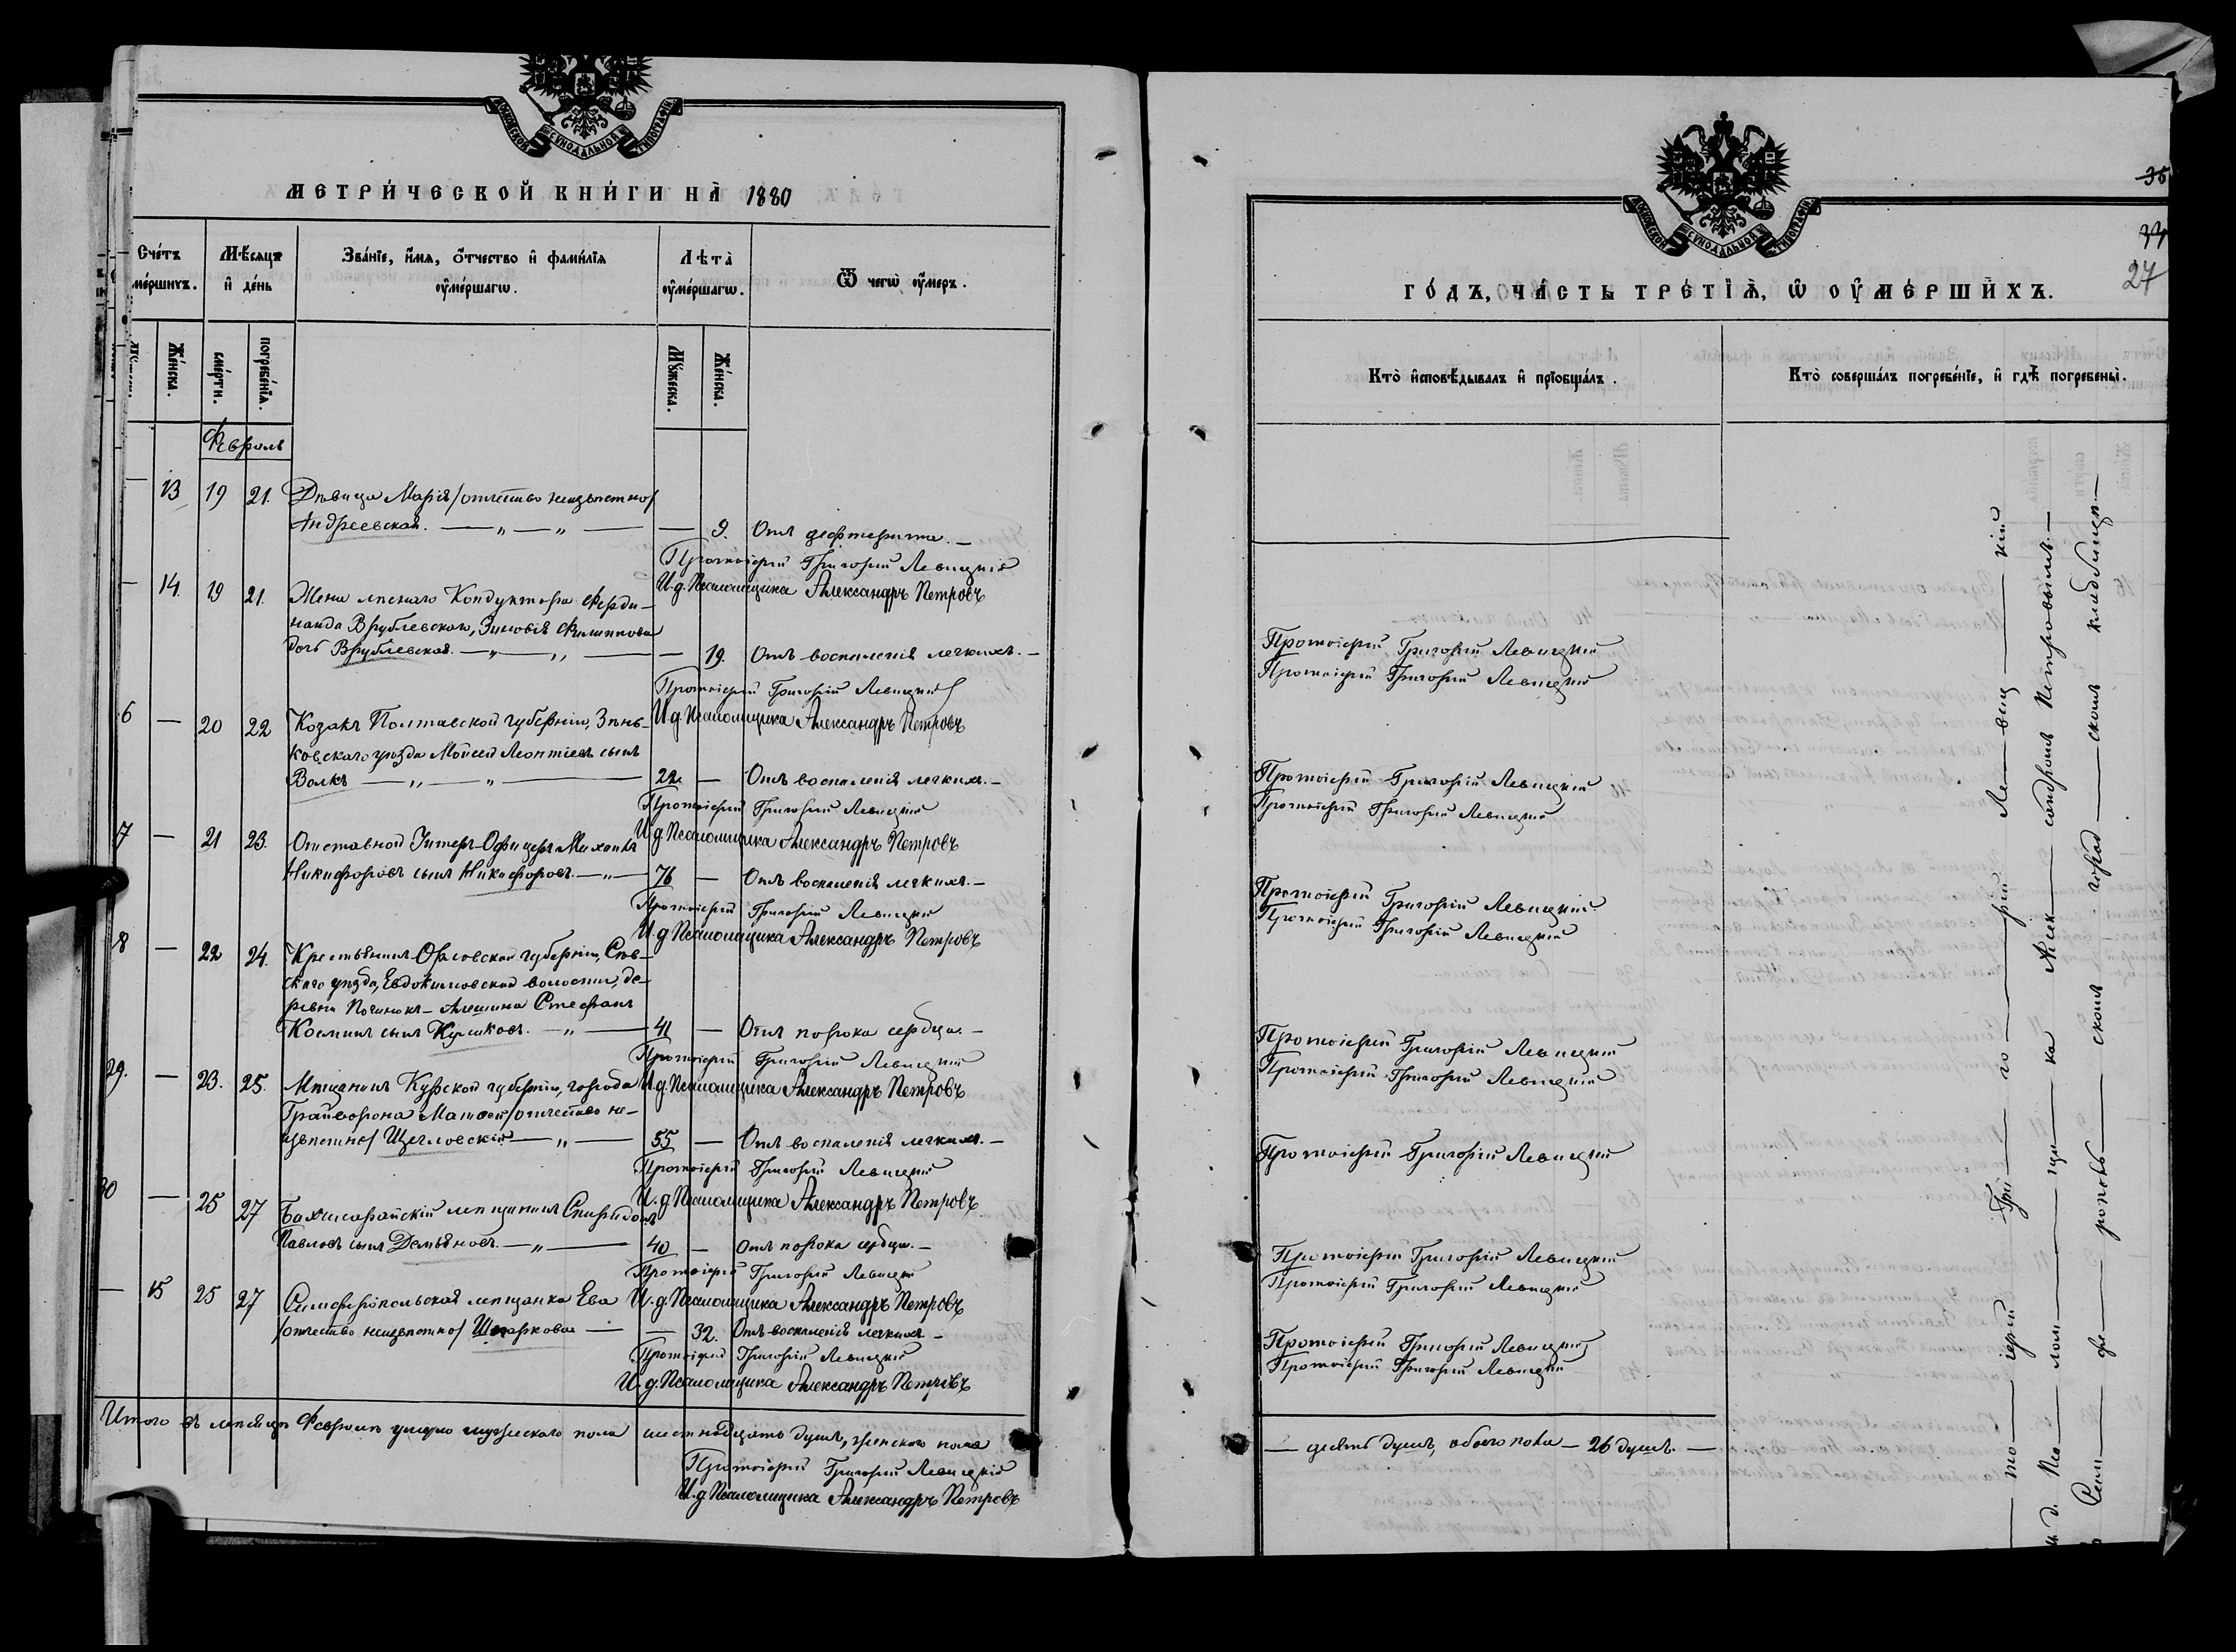 МОСКОВСКОЙ СУНОДАЛЬНОЙ ТИПОГРАФІИ
МЕТРИ́ЧЕСКОЙ КНИ́ГИ НА̀ 1880
Сче́тъ
ме́ршихъ.
Мѣ́сяцъ
и҆ де́нь
Зва́нїе, и҆́мѧ, ѻ҆́тчество и҆ фами́лїѧ
ᲂу҆ме́ршагѡ.
Лѣта̀
ᲂу҆ме́ршагѡ.
Ѿ чегѡ̀ ᲂу҆́меръ.
Же́нска.
сме́рти.
погребе́нїѧ.
Мꙋ́жеска.
Же́нска.
Февраль
— 13 19 21. Дѣвица Марія /отчество неизвѣстно/
Андреевская. — „ — „ — — 9. Отъ дефтерита. —
Протоіерей Григорій Левицкій
И.д. Псаломщика Александръ Петровъ
— 14. 19 21. Жена лѣснаго Кондуктора Ферди-
нанда Врублевскаго, Зиновія Филиппова
дочь Врублевская. — „ — „ — — 19. Отъ воспаленія легкихъ. —
Протоіерей Григорій Левицкій
И.д. Псаломщика Александръ Петровъ
6 — 20 22 Козакъ Полтавской губерніи, Зѣнь-
ковскаго уѣзда Мойсей Леонтіевъ сынъ
Волкъ — „ — „ — 22 — Отъ воспаленія легкихъ. —
Протоіерей Григорій Левицкій
И.д. Псаломщика Александръ Петровъ
7 — 21 23. Отставной Унтеръ-Офицеръ Михаилъ
Никифоровъ сынъ Никифоровъ. — „ — 76 — Отъ воспаленія легкихъ. —
Протоіерей Григорій Левицкій
И.д. Псаломщика Александръ Петровъ
8 — 22 24. Крестьянинъ Орловской губерніи, Сѣв-
скаго уѣзда, Евдокимовской волости, де-
ревни Починокъ-Алешина Стефанъ
Косминъ сынъ Куликовъ. — „ — 41 — Отъ порока сердца. —
Протоіерей Григорій Левицкій
И.д. Псаломщика Александръ Петровъ
29. — 23. 25. Мѣщанинъ Курской губерніи, города
Грайворона Матвей /отчество не-
извѣстно/ Щегловскій — „ — 55 — Отъ воспаленія легкихъ. —
Протоіерей Григорій Левицкій
И.д. Псаломщика Александръ Петровъ
30 — 25 27 Бахчисарайскій мѣщанинъ Спиридонъ
Павловъ сынъ Демьяновъ. — „ — 40 — Отъ порока сердца. —
Протоіерей Григорій Левицкій
И.д. Псаломщика Александръ Петровъ
— 15 25 27 Симферопольская мѣщанка Ева
/отчество неизвѣстно/ — — 32. Отъ воспаленія легкихъ. —
Протоіерей Григорій Левицкій
И.д. Псаломщика Александръ Петровъ
Итого въ мѣсяцѣ Февралѣ умерло мужескаго пола шестнадцать душъ, женскаго пола
Протоіерей Григорій Левицкій
И.д. Псаломщика Александръ Петровъ
МОСКОВСКОЙ СУНОДАЛЬНОЙ ТИПОГРАФІИ
27
ГО́ДЪ, ЧА́СТЬ ТРЕ́ТЇѦ, Ѡ҆ ᲂУ҆МЕ́РШИХЪ.
Кто̀ и҆сповѣ́дывалъ и҆ прїобща́лъ.
Кто̀ соверша́лъ погребе́нїе, и҆ гдѣ̀ погребены̀.
Протоіерей Григорій Левицкій
Протоіерей Григорій Левицкій
Протоіерей Григорій Левицкій
Протоіерей Григорій Левицкій
Протоіерей Григорій Левицкій
Протоіерей Григорій Левицкій
Протоіерей Григорій Левицкій
Протоіерей Григорій Левицкій
Протоіерей Григорій Левицкій
Протоіерей Григорій Левицкій
Протоіерей Григорій Левицкій
Протоіерей Григорій Левицкій
Протоіерей Григорій Левицкій
— десять душъ, обоего пола — 26 душъ. —
то — іерей — Гри — го — рій — Левиц — кій
и. д. Пса — лом — щи — ка — Алек — сандромъ Петровымъ. —
Сим — фе — ропольскомъ — город — скомъ кладбищѣ. —